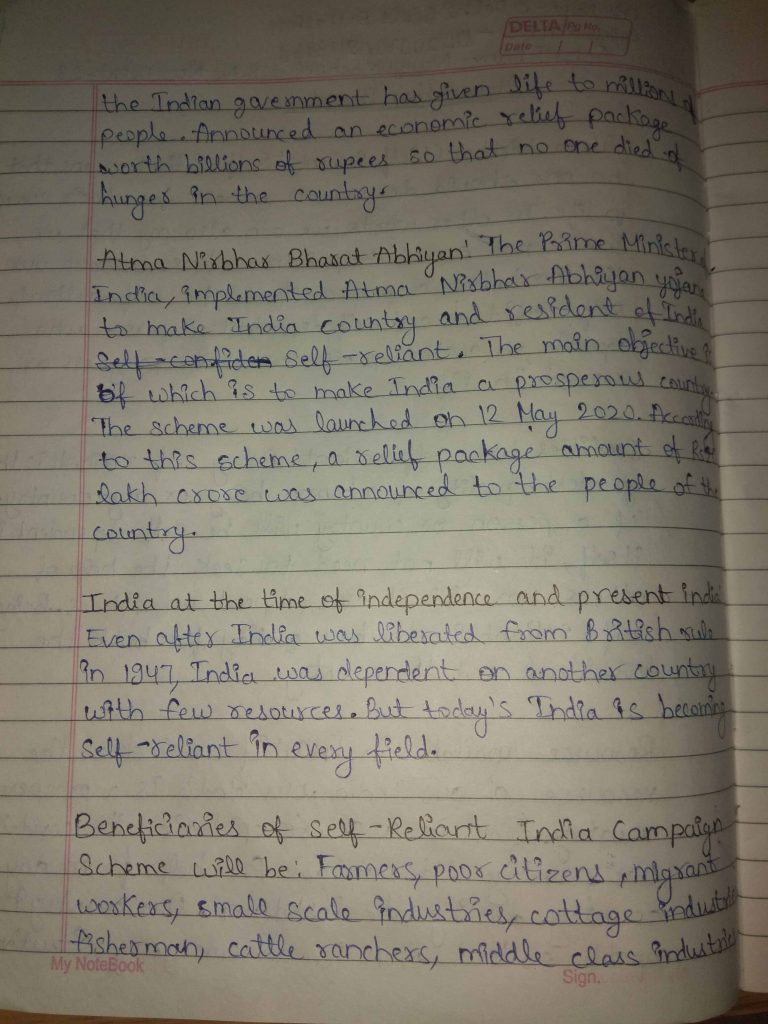 DELTA Pg No.
Date / /
the Indian government has given life to millions of
people. Announced an economic relief package
worth billions of rupees so that no one died of
hunger in the country.
Atma Nirbhar Bharat Abhiyan: The Prime Minister
India, implemented Atma Nirbhar Abhiyan yojana
to make India country and resident of India
Self-confiden Self-reliant. The main objective
of which is to make India a prosperous country
The scheme was launched on 12 May 2020. According
to this scheme, a relief package amount of
lakh crore was announced to the people of the
country.
India at the time of independence and present india
Even after India was liberated from British rule
in 1947, India was dependent on another country
with few resources. But today's India is becoming
Self-reliant in every field.
Beneficiaries of Self-Reliant India Campaign
Scheme will be: Farmers, poor citizens, migrant
workers, small scale industries, cottage industries
fisherman, cattle ranchers, middle class industries
My NoteBook
Sign.